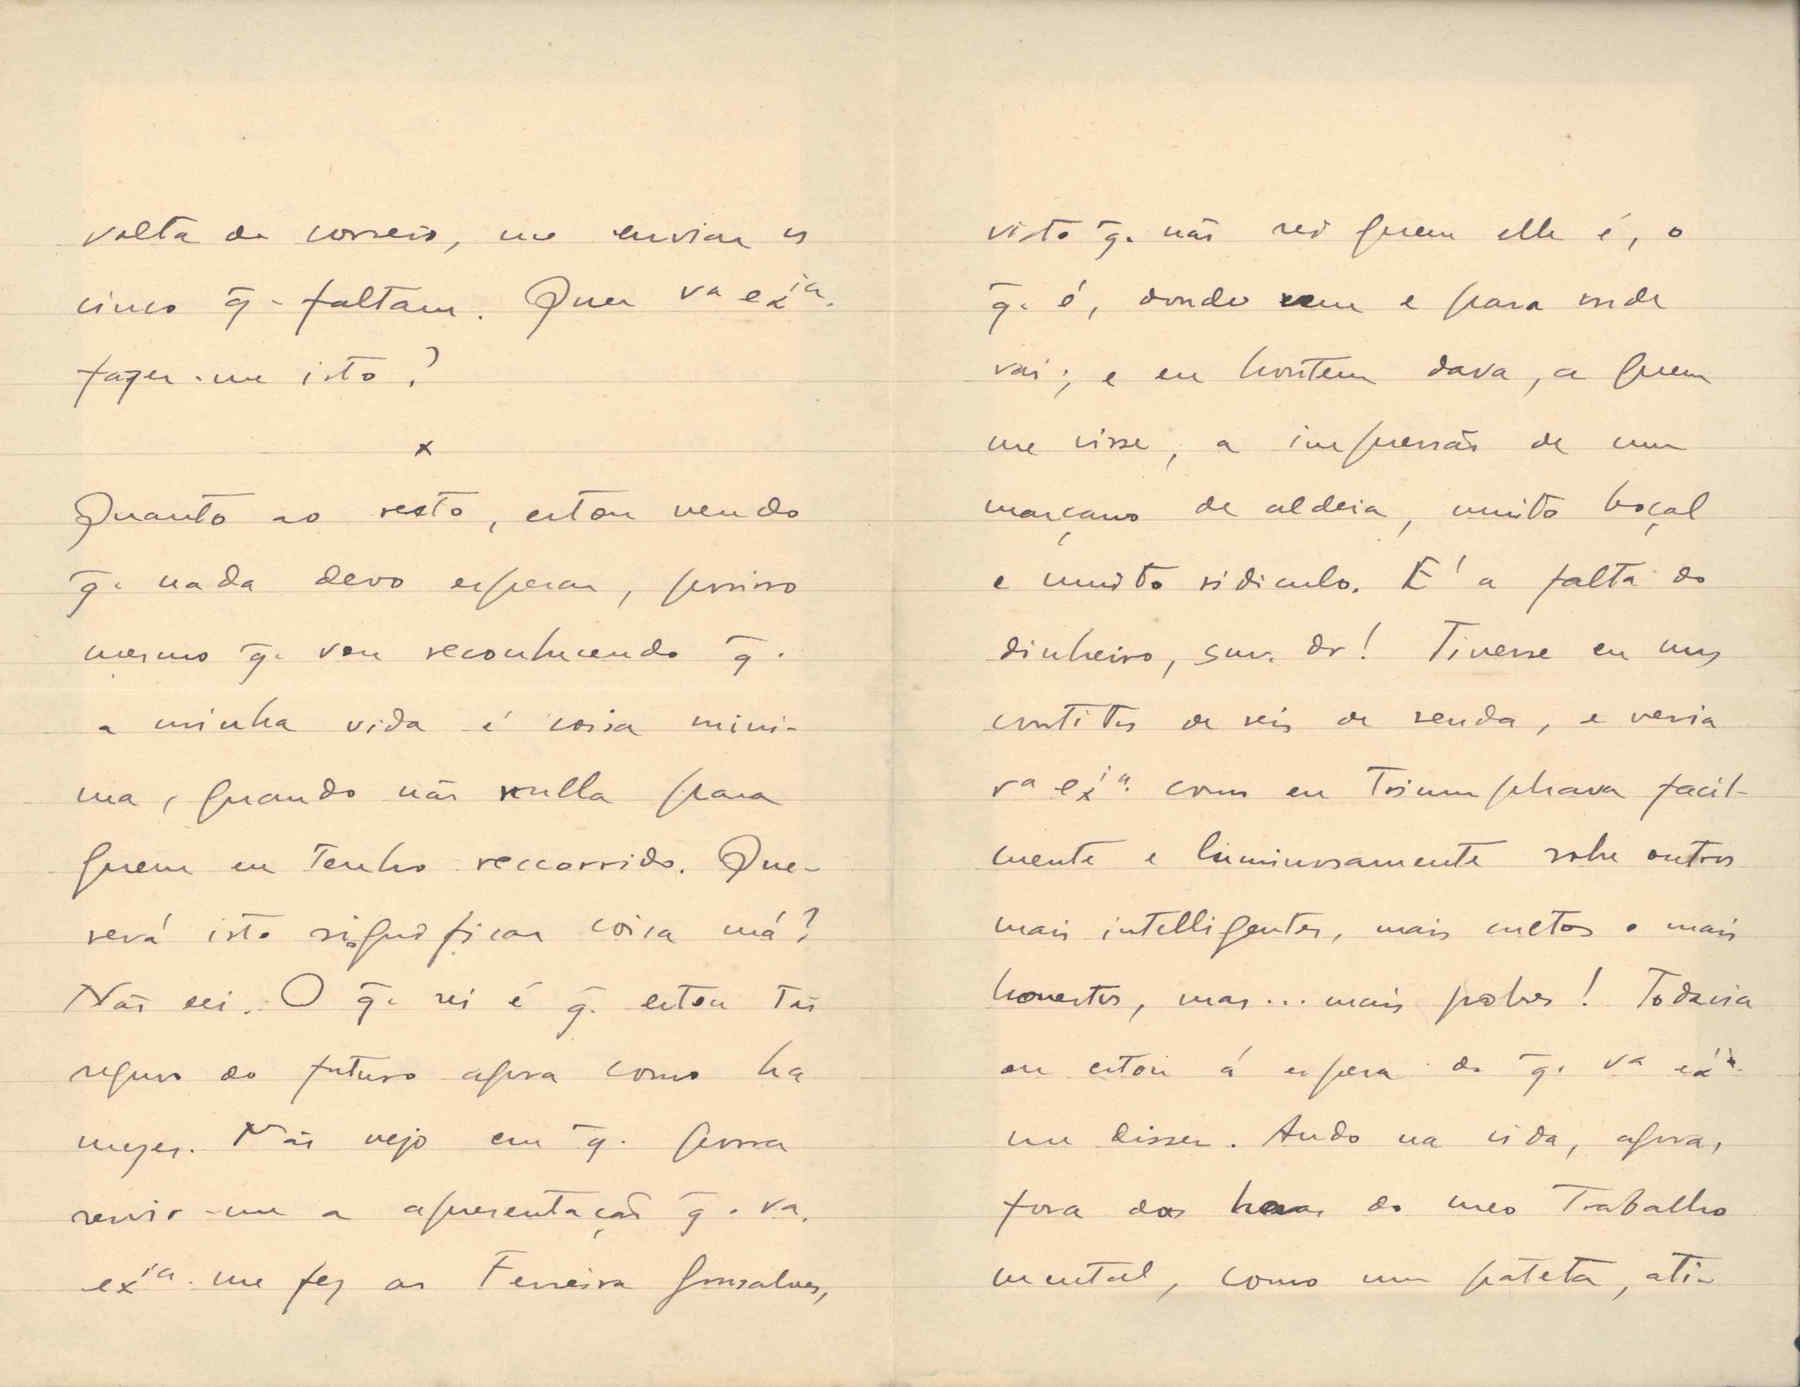 volta do correio, me enviar os
cinco q̄. faltam. Quer vª exⁱª.
fazer-me isto?
x
Quanto ao resto, estou vendo
q̄. nada devo esperar, porisso
mesmo q̄. vou reconhecendo q̄.
a minha vida é coisa mini-
ma, quando não nulla para
quem eu tenho reccorrido. Que-
rerá isto significar coisa má?
Não sei. O q̄. sei é q̄. estou tão
seguro do futuro agora como ha
mezes. Não vejo em q̄. possa
servir-me a apresentação q̄. va.
exⁱª. me fez ao Ferreira Gonsalves,
visto q̄. não sei quem elle é, o
q̄. é, donde vem e para onde
vai; e eu hontem dava, a quem
me visse, a impressão de um
marçano de aldeia, muito boçal
e muito ridiculo. E' a falta do
dinheiro, snr. dr! Tivesse eu uns
contitos de reis de renda, e veria
vª exⁱª. como eu triumphava facil-
mente e luminosamente sobre outros
mais intelligentes, mais cultos e mais
honestos, mas... mais pobres! Todavia
eu estou á espera do q̄. vª exⁱª.
me disser. Ando na vida, agora,
fora das horas do meo trabalho
mental, como um pateta, ati-